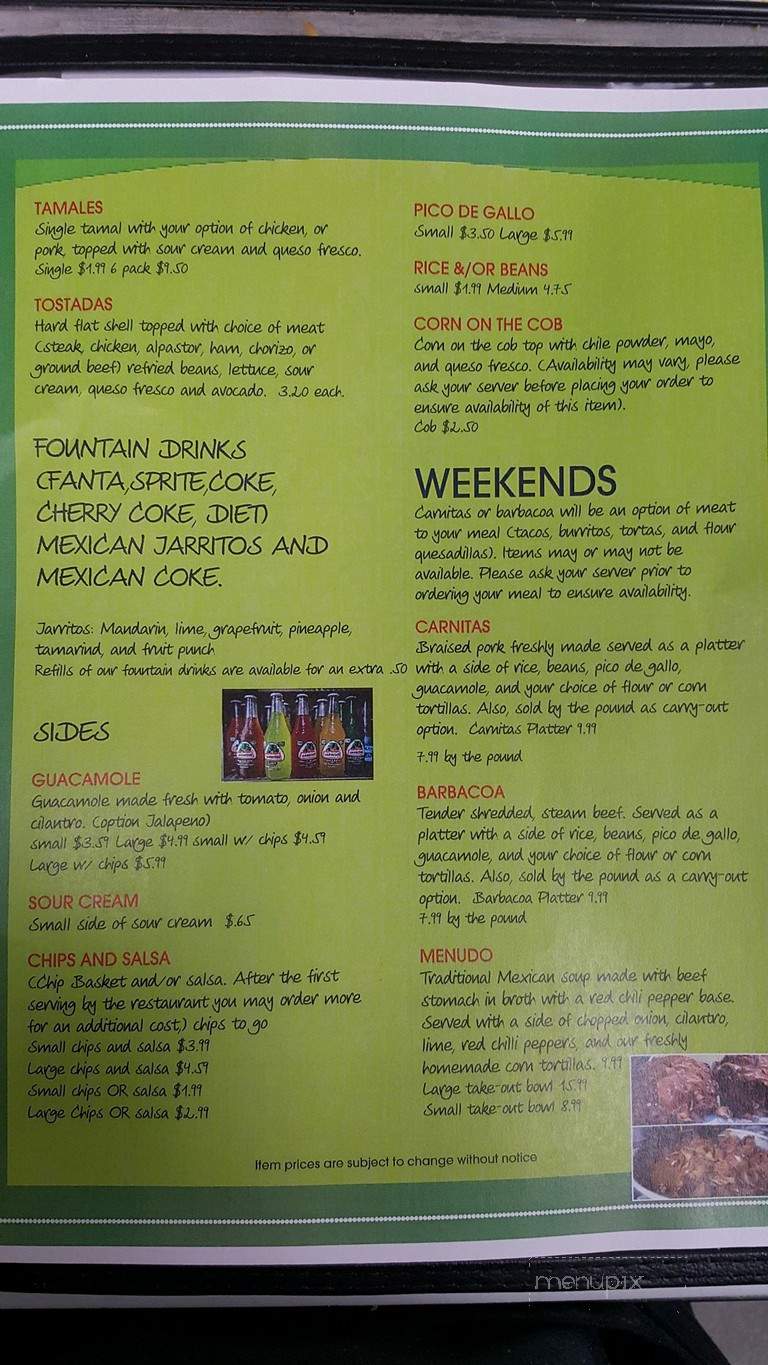 TAMALES
Single tamal with your option of chicken, or
pork, topped with sour cream and queso fresco.
Single $1.99 6 pack $9.50
TOSTADAS
Hard flat shell topped with choice of meat
(steak, chicken, alpastor, ham, chorizo, or
ground beef) refried beans, lettuce, sour
cream, queso fresco and avocado. 3.20 each.
FOUNTAIN DRINKS
(FANTA,SPRITE,COKE,
CHERRY COKE, DIET)
MEXICAN JARRITOS AND
MEXICAN COKE.
Jarritos: Mandarin, lime, grapefruit, pineapple,
tamarind, and fruit punch
Refills of our fountain drinks are available for an extra .50
SIDES
GUACAMOLE
Guacamole made fresh with tomato, onion and
cilantro. (option Jalapeno)
small $3.59 Large $4.99 small w/ chips $4.59
Large w/ chips $5.99
SOUR CREAM
Small side of sour cream $.65
CHIPS AND SALSA
(Chip Basket and/or salsa. After the first
serving by the restaurant you may order more
for an additional cost,) chips to go
Small chips and salsa $3.99
Large chips and salsa $4.59
Small chips OR salsa $1.99
Large Chips OR salsa $2.99
PICO DE GALLO
Small $3.50 Large $5.99
RICE &/OR BEANS
small $1.99 Medium 4.75
CORN ON THE COB
Corn on the cob top with chile powder, mayo,
and queso fresco. (Availability may vary, please
ask your server before placing your order to
ensure availability of this item).
Cob $2.50
WEEKENDS
Carnitas or barbacoa will be an option of meat
to your meal (tacos, burritos, tortas, and flour
quesadillas). Items may or may not be
available. Please ask your server prior to
ordering your meal to ensure availability.
CARNITAS
Braised pork freshly made served as a platter
with a side of rice, beans, pico de gallo,
guacamole, and your choice of flour or corn
tortillas. Also, sold by the pound as carry-out
option. Carnitas Platter 9.99
7.99 by the pound
BARBACOA
Tender shredded, steam beef. Served as a
platter with a side of rice, beans, pico de gallo,
guacamole, and your choice of flour or corn
tortillas. Also, sold by the pound as a carry-out
option. Barbacoa Platter 9.99
7.99 by the pound
MENUDO
Traditional Mexican soup made with beef
stomach in broth with a red chili pepper base.
Served with a side of chopped onion, cilantro,
lime, red chilli peppers, and our freshly
homemade corn tortillas. 9.99
Large take-out bowl 15.99
Small take-out bowl 8.99
Item prices are subject to change without notice
menupix